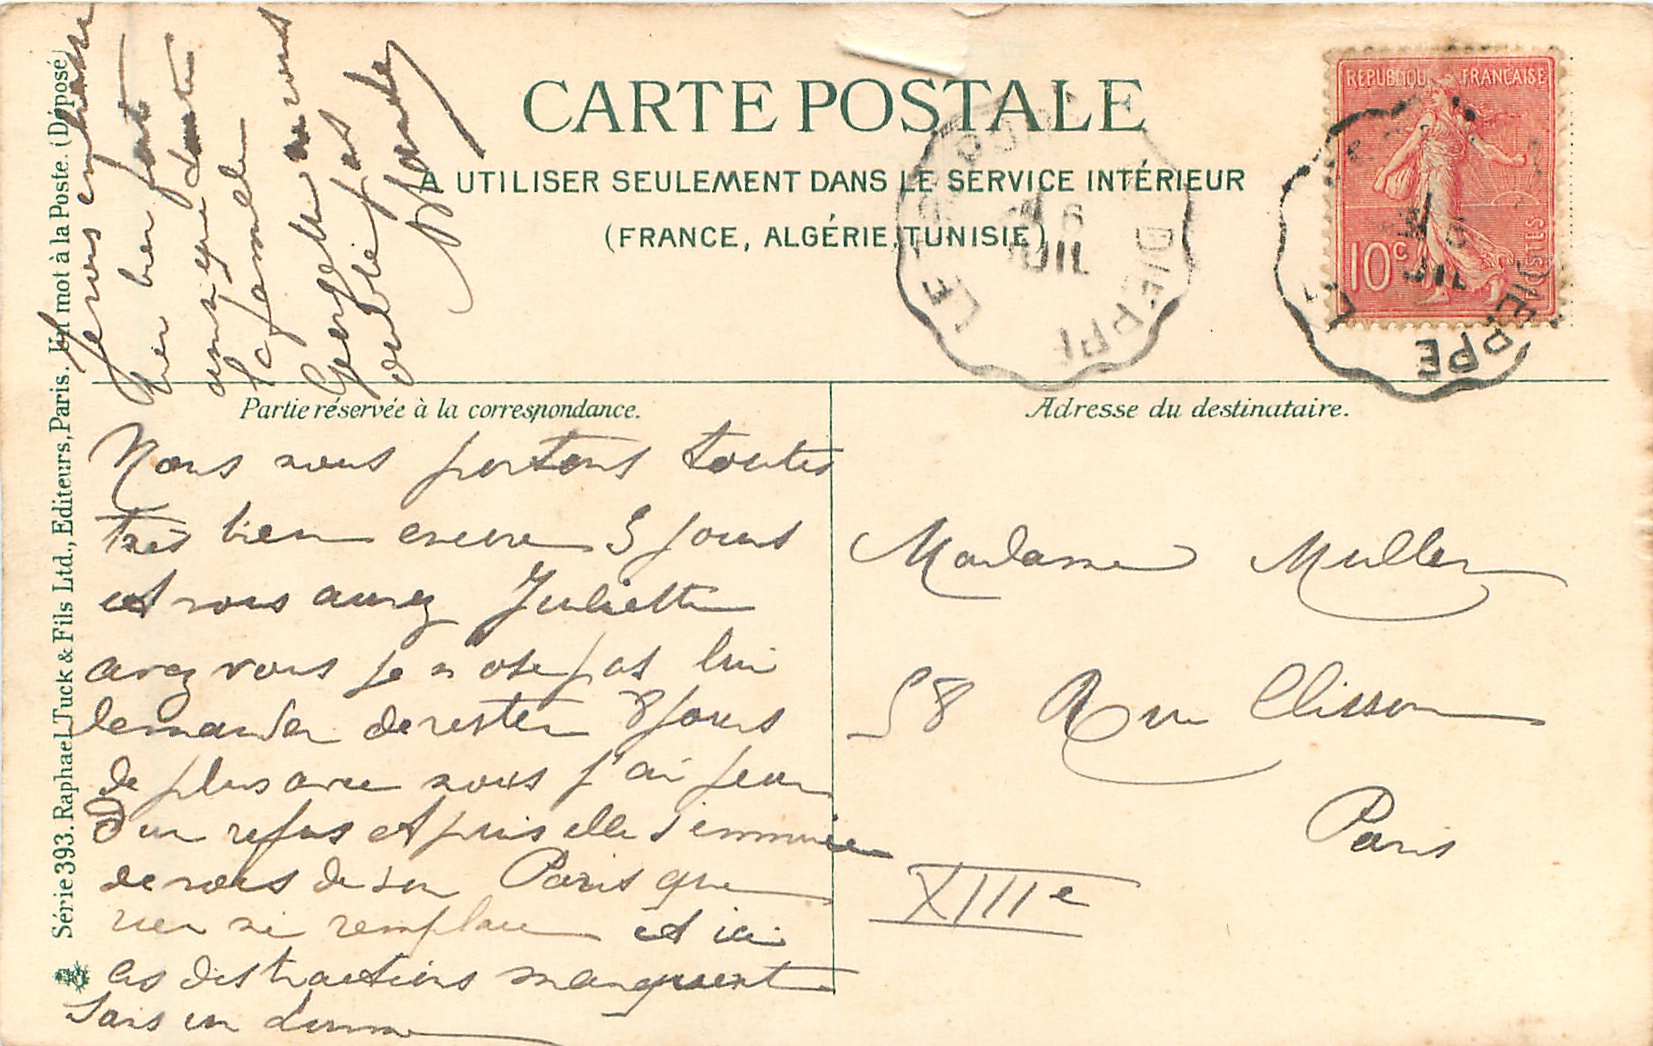 CARTE POSTALE
A UTILISER SEULEMENT DANS LE SERVICE INTÉRIEUR
(FRANCE, ALGÉRIE, TUNISIE)
REPUBLIQUE FRANCAISE
10c
POSTES
LE TREPORT
6
JUIL
DIEPPE
LE
6
JUIL
DIEPPE
Partie réservée à la correspondance.
Adresse du destinataire.
Nous nous portons toutes
très bien encore 5 jours
et vous aurez Juliette
avez vous je n ose pas lui
demander de rester 8 jours
de plus avec nous j'ai peur
d'un refus et puis elle s'ennuie
de vous de son Paris que
rien ne remplace et ici
les distractions manquent
Je vous embrasse
bien bien fort
ainsi que toute
la famille
Marthe
oublie pas
Madame Muller
58 Rue Clisson
Paris
XIIIe
Série 393. Raphael Tuck & Fils Ltd., Editeurs, Paris. Un mot à la Poste. (Déposé)